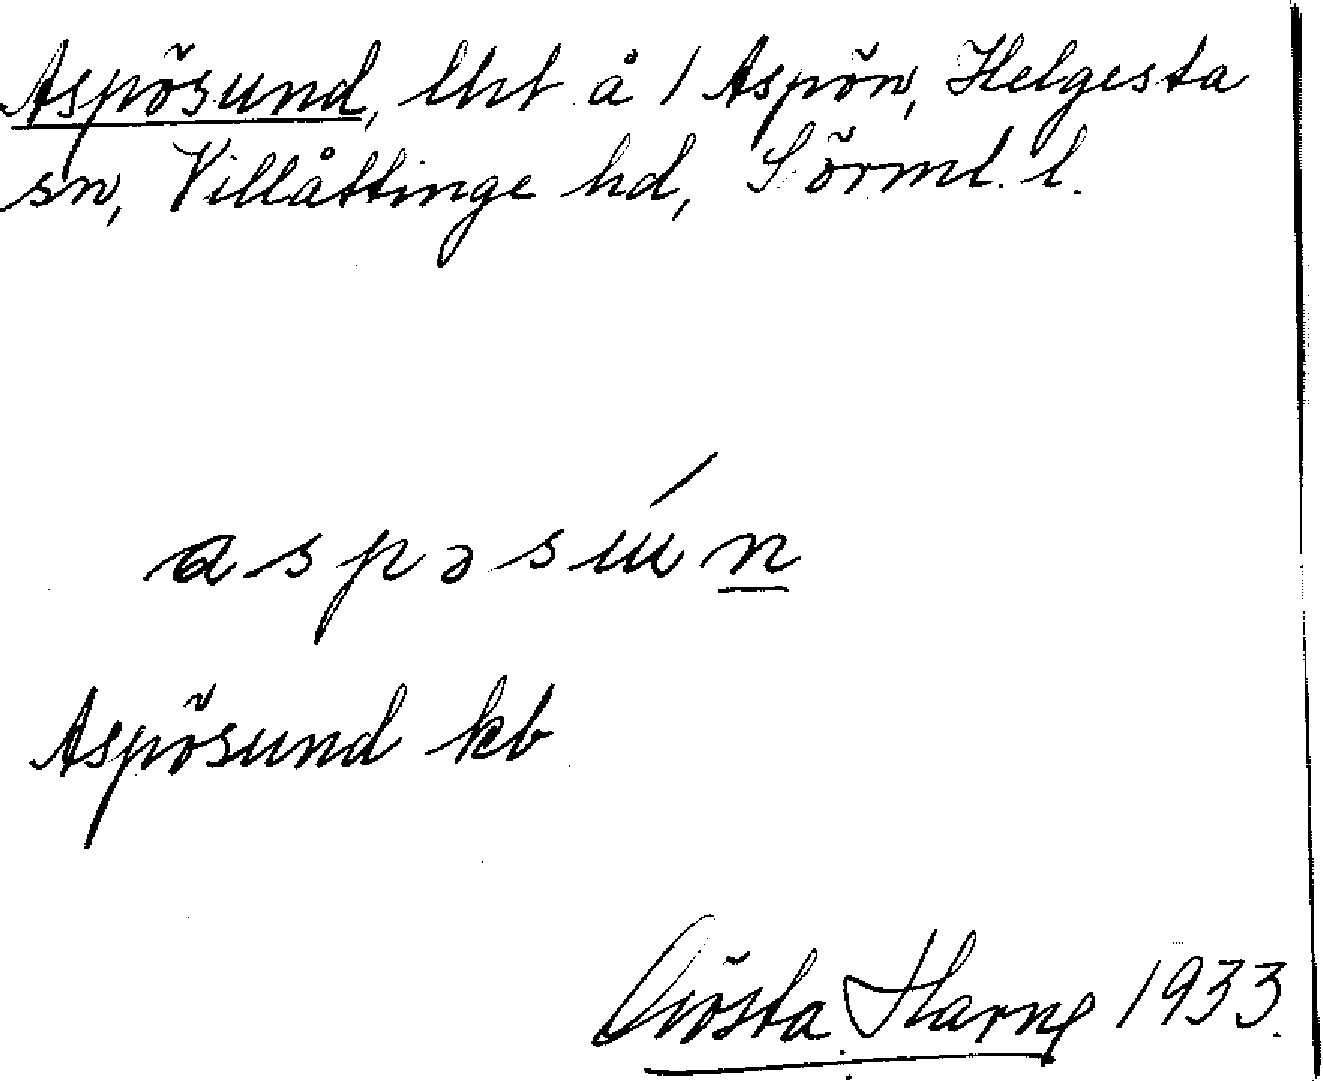 Aspösund, lht å / Aspön, Helgesta
sn, Villåttinge hd, Sörml. l.
aspəsún
Aspösund kb
Gösta Harne 1933.